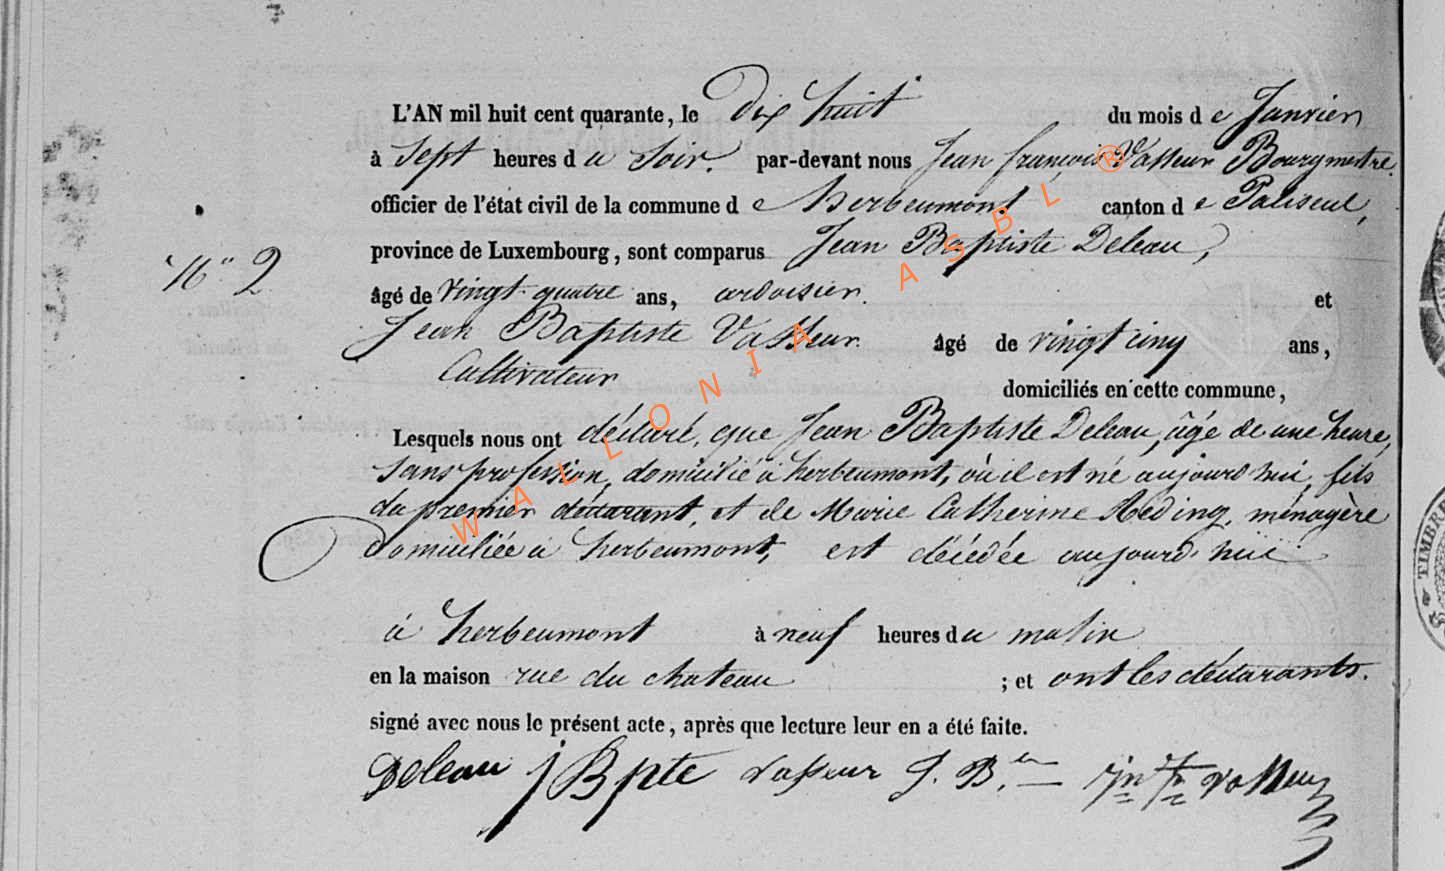 L'AN mil huit cent quarante, le Dix huit du mois de Janvier
à Sept heures du Soir. par-devant nous Jean françois Vasseur Bourgmestre.
officier de l'état civil de la commune de herbeumont canton de Paliseul,
province de Luxembourg, sont comparus Jean Baptiste Deleau,
N° 2
âgé de vingt quatre ans, ardoisier. et
Jean Baptiste Vasseur. âgé de vingt cinq ans,
Cultivateur domiciliés en cette commune,
Lesquels nous ont déclaré, que Jean Baptiste Deleau, âgé de une heure,
sans profession, domicilié à herbeumont, où il est né aujourd'hui, fils
du premier déclarant, et de Marie Catherine Reding, ménagère
domiciliée à herbeumont, est décédée aujourd'hui
à herbeumont à neuf heures du matin
en la maison rue du chateau ; et ont les déclarants.
signé avec nous le présent acte, après que lecture leur en a été faite.
Deleau j Bpte Vasseur J. B. Vasseur
WALLONIA ASBL ®
TIMBRE